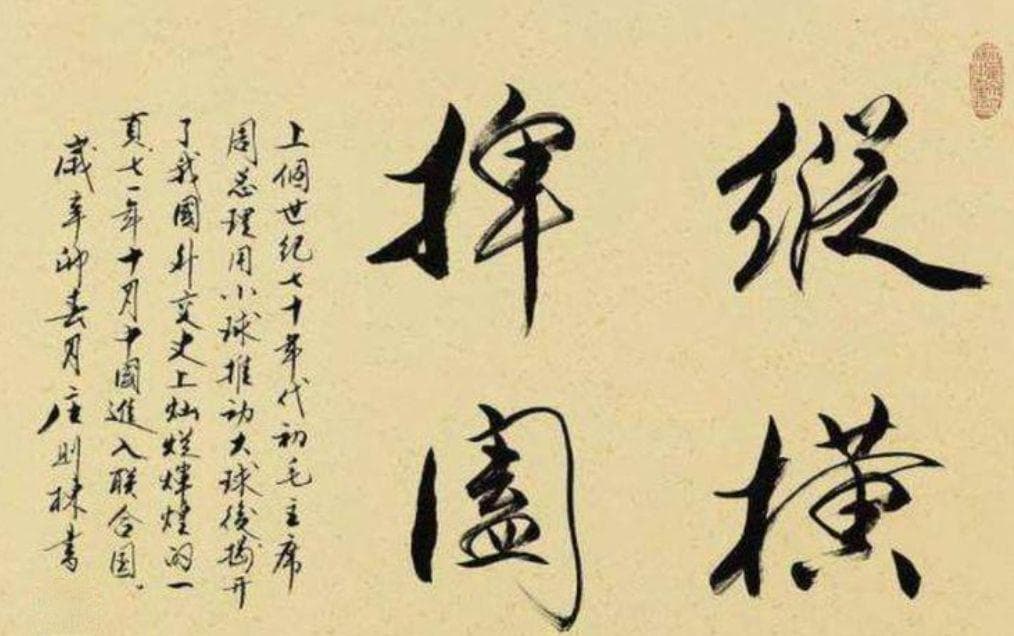 縱橫
捭阖
上個世紀七十年代初毛主席
周总理用小球推动大球後揭开
了我國外交史上灿烂輝煌的一
頁.七一年十月中國進入联合国.
歲辛卯春月庄则栋書